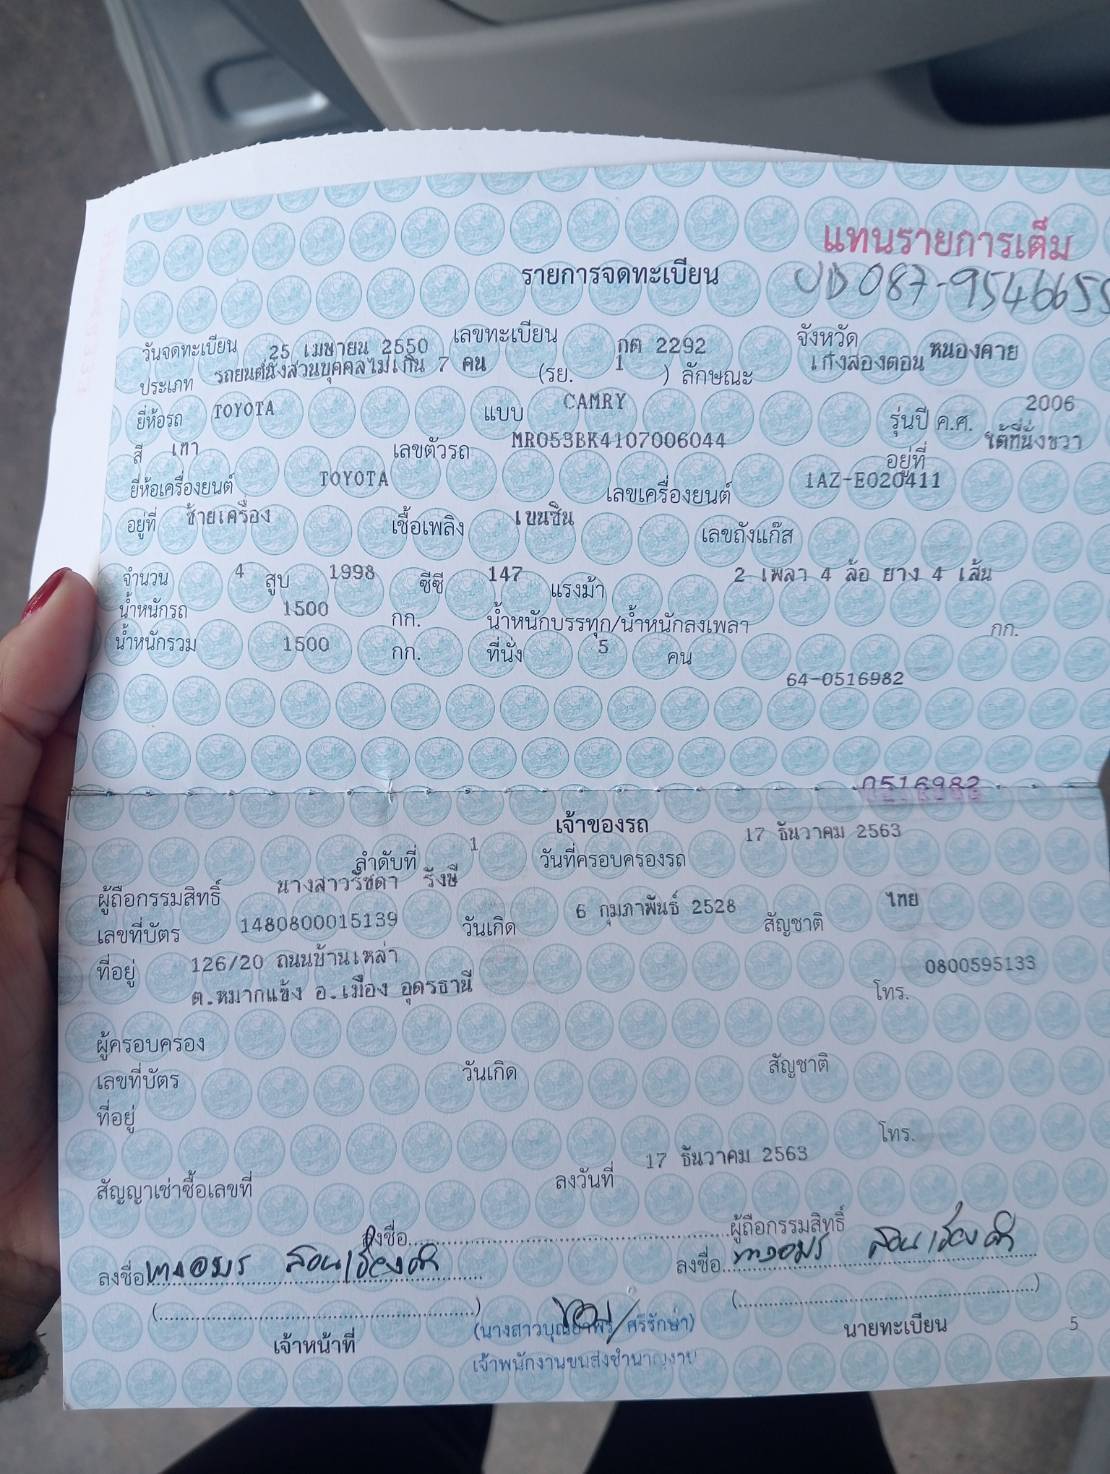 แทนรายการเต็ม
รายการจดทะเบียน
087-954665
วันจดทะเบียน 25 เมษายน 2550 เลขทะเบียน กต 2292 จังหวัด หนองคาย
ประเภท รถยนต์นั่งส่วนบุคคลไม่เกิน 7 คน (รย. 1 ) ลักษณะ เก๋งสองตอน
ยี่ห้อรถ TOYOTA แบบ CAMRY รุ่นปี ค.ศ. 2006
สี เทา เลขตัวรถ MR053BK4107006044 อยู่ที่ ใต้ที่นั่งขวา
ยี่ห้อเครื่องยนต์ TOYOTA เลขเครื่องยนต์ 1AZ-E020411
อยู่ที่ ซ้ายเครื่อง เชื้อเพลิง เบนซิน เลขถังแก๊ส
จำนวน 4 สูบ 1998 ซีซี 147 แรงม้า 2 เพลา 4 ล้อ ยาง 4 เส้น
น้ำหนักรถ 1500 กก. น้ำหนักบรรทุก/น้ำหนักลงเพลา กก.
น้ำหนักรวม 1500 กก. ที่นั่ง 5 คน
64-0516982
0516982
เจ้าของรถ
ลำดับที่ 1 วันที่ครอบครองรถ 17 ธันวาคม 2563
ผู้ถือกรรมสิทธิ์ นางสาวรัชดา รังษี
เลขที่บัตร 1480800015139 วันเกิด 6 กุมภาพันธ์ 2528 สัญชาติ ไทย
ที่อยู่ 126/20 ถนนบ้านเหล่า
ต.หมากแข้ง อ.เมือง อุดรธานี โทร. 0800595133
ผู้ครอบครอง
เลขที่บัตร วันเกิด สัญชาติ
ที่อยู่
โทร.
สัญญาเช่าซื้อเลขที่ ลงวันที่ 17 ธันวาคม 2563
ลงชื่อ ผู้ถือกรรมสิทธิ์
ลงชื่อ ลงชื่อ
(นางสาวบุณยาพร ศรีรักษา)
เจ้าหน้าที่ นายทะเบียน
เจ้าพนักงานขนส่งชำนาญงาน
5